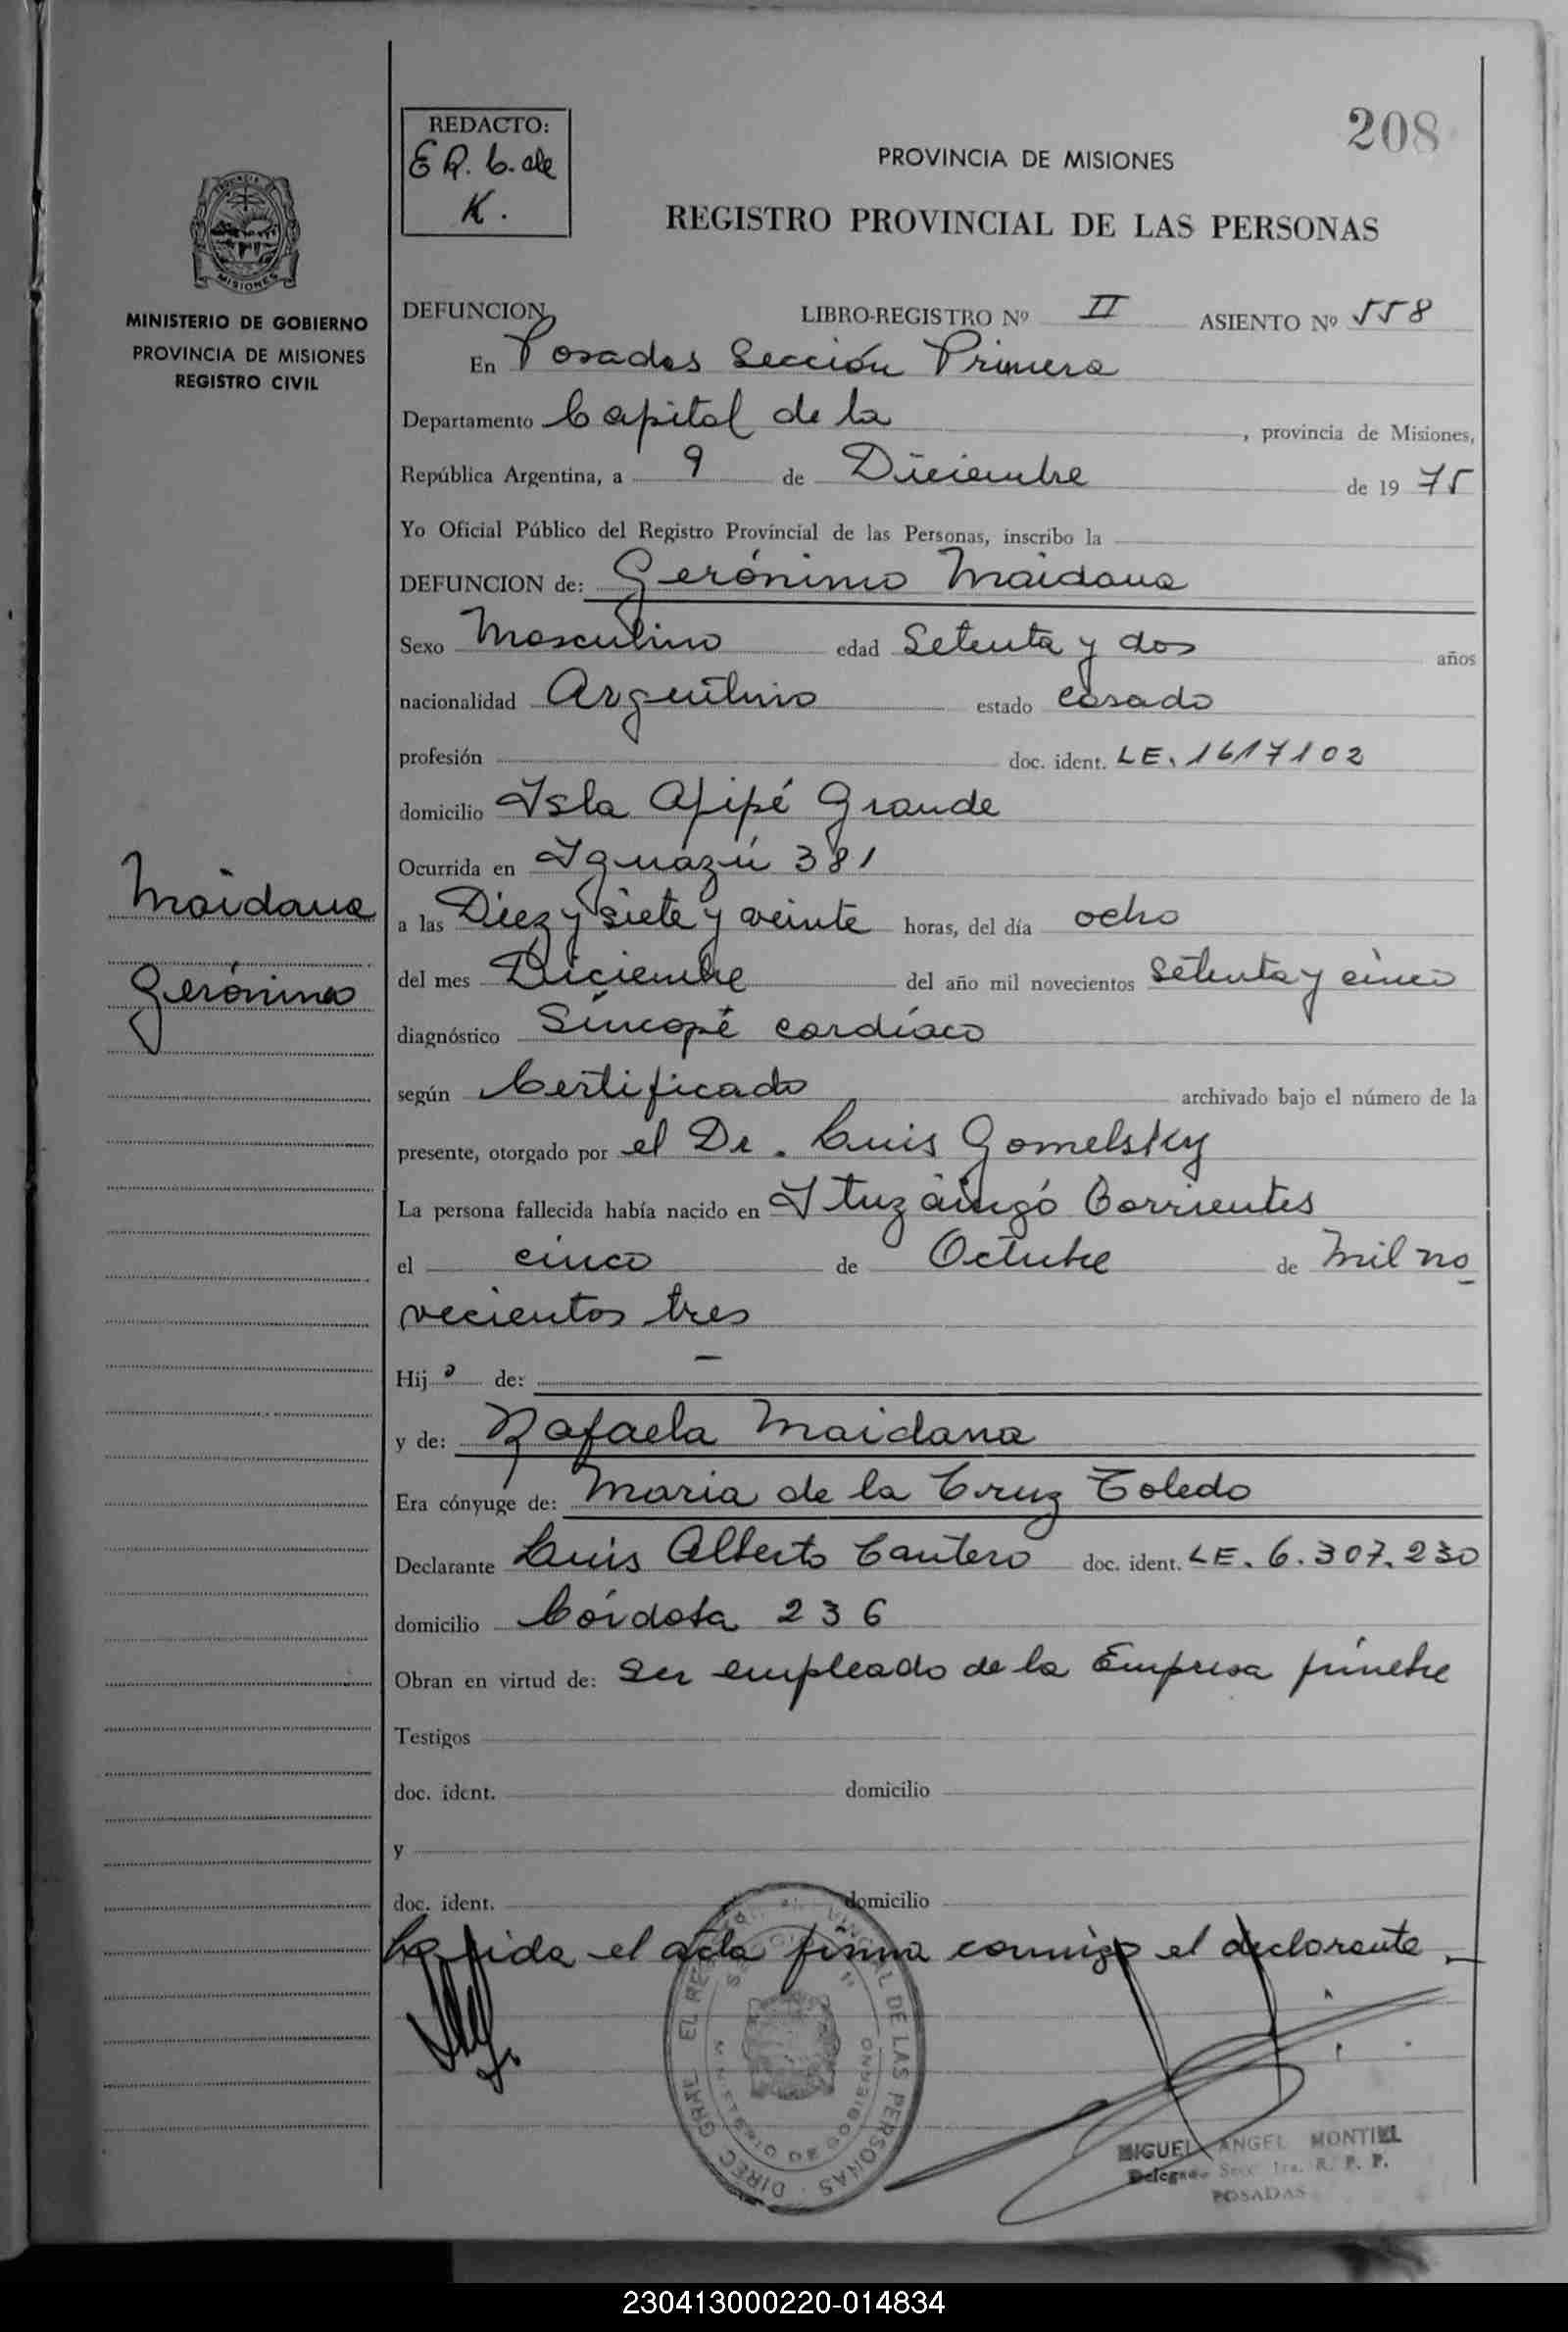 208
REDACTO:
E R. C. de
K.
PROVINCIA DE MISIONES
REGISTRO PROVINCIAL DE LAS PERSONAS
MISIONES
MINISTERIO DE GOBIERNO
PROVINCIA DE MISIONES
REGISTRO CIVIL
DEFUNCION LIBRO-REGISTRO Nº II ASIENTO Nº 558
En Posadas Sección Primera
Departamento Capital de la , provincia de Misiones,
República Argentina, a 9 de Diciembre de 1975
Yo Oficial Público del Registro Provincial de las Personas, inscribo la
DEFUNCION de: Gerónimo Maidana
Sexo Masculino edad Setenta y dos años
nacionalidad Argentino estado casado
profesión doc. ident. LE. 1617102
domicilio Isla Apipé Grande
Ocurrida en Iguazú 381
Maidana
Gerónimo
a las Diez y siete y veinte horas, del día ocho
del mes Diciembre del año mil novecientos Setenta y cinco
diagnóstico Síncopé cardíaco
según Certificado archivado bajo el número de la
presente, otorgado por el Dr. Luis Gomelsky
La persona fallecida había nacido en Ituzaingó Corrientes
el cinco de Octubre de Mil no
vecientos tres
Hijo de: —
y de: Rafaela Maidana
Era cónyuge de: Maria de la Cruz Toledo
Declarante Luis Alberto Cantero doc. ident. LE. 6.307.230
domicilio Córdoba 236
Obran en virtud de: Ser empleado de la Empresa fúnebre
Testigos
doc. ident. domicilio
y
doc. ident. domicilio
Leida el acta firma conmigo el declarante.—
DIREC GRAL EL REGISTRO PROVINCIAL DE LAS PERSONAS
MINISTERIO DE GOBIERNO
MIGUEL ANGEL MONTIEL
Delegado Secc 1ra. R. P. P.
POSADAS
230413000220-014834